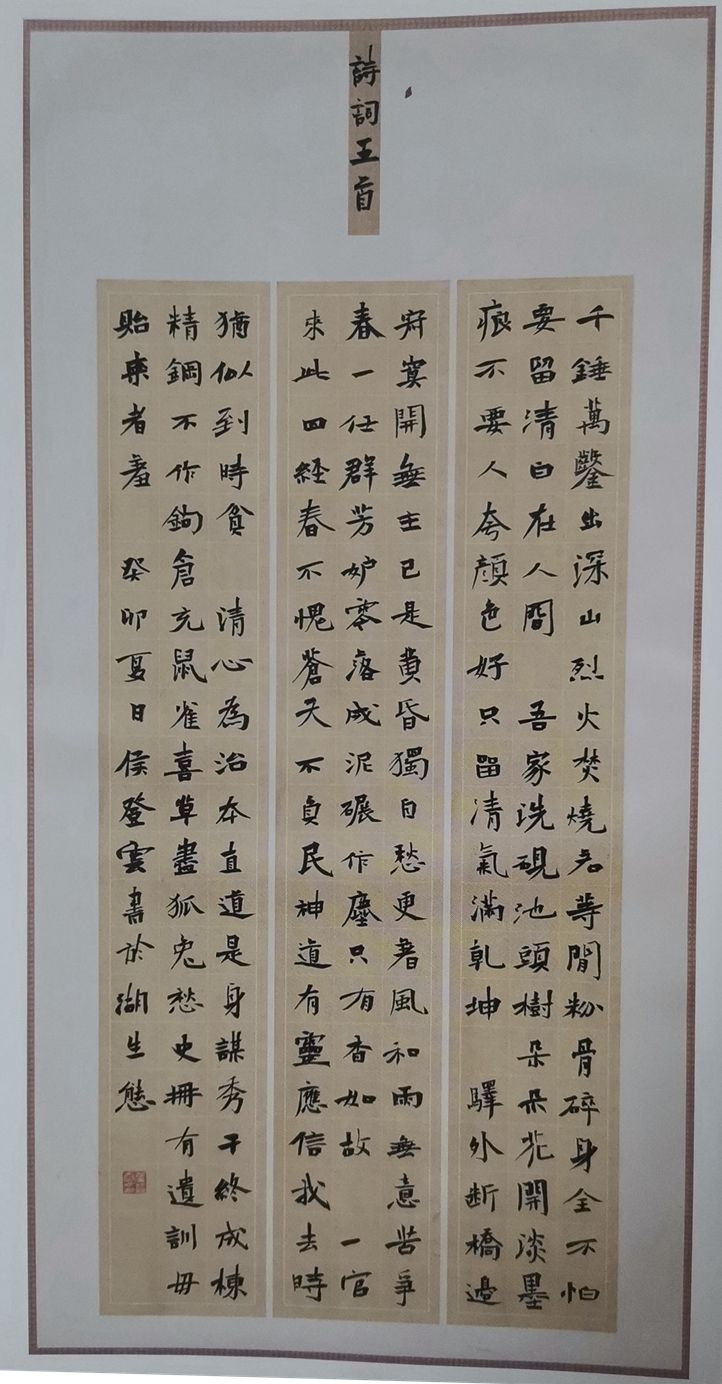 詩詞五首
千錘萬鑿出深山烈火焚燒若等閒粉骨碎身全不怕
要留清白在人間 吾家洗硯池頭樹朵朵花開淡墨
痕不要人夸顏色好只留清氣滿乾坤 驛外断橋邊
寂寞開無主已是黄昏獨自愁更著風和雨無意苦爭
春一任群芳妒零落成泥碾作塵只有香如故 一官
來此四經春不愧蒼天不負民神道有靈應信我去時
猶似到時貧 清心為治本直道是身謀秀干終成棟
精鋼不作鉤倉充鼠雀喜草盡狐兔愁史冊有遺訓毋
貽來者羞 癸卯夏日侯登雲書於湖生態